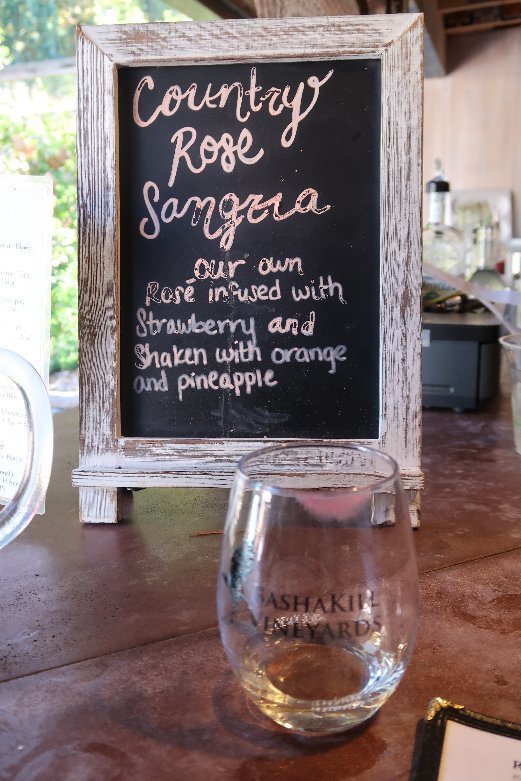 Country
Rose
Sangria
our own
Rosé infused with
Strawberry and
Shaken with orange
and pineapple
BASHAKILL
VINEYARDS